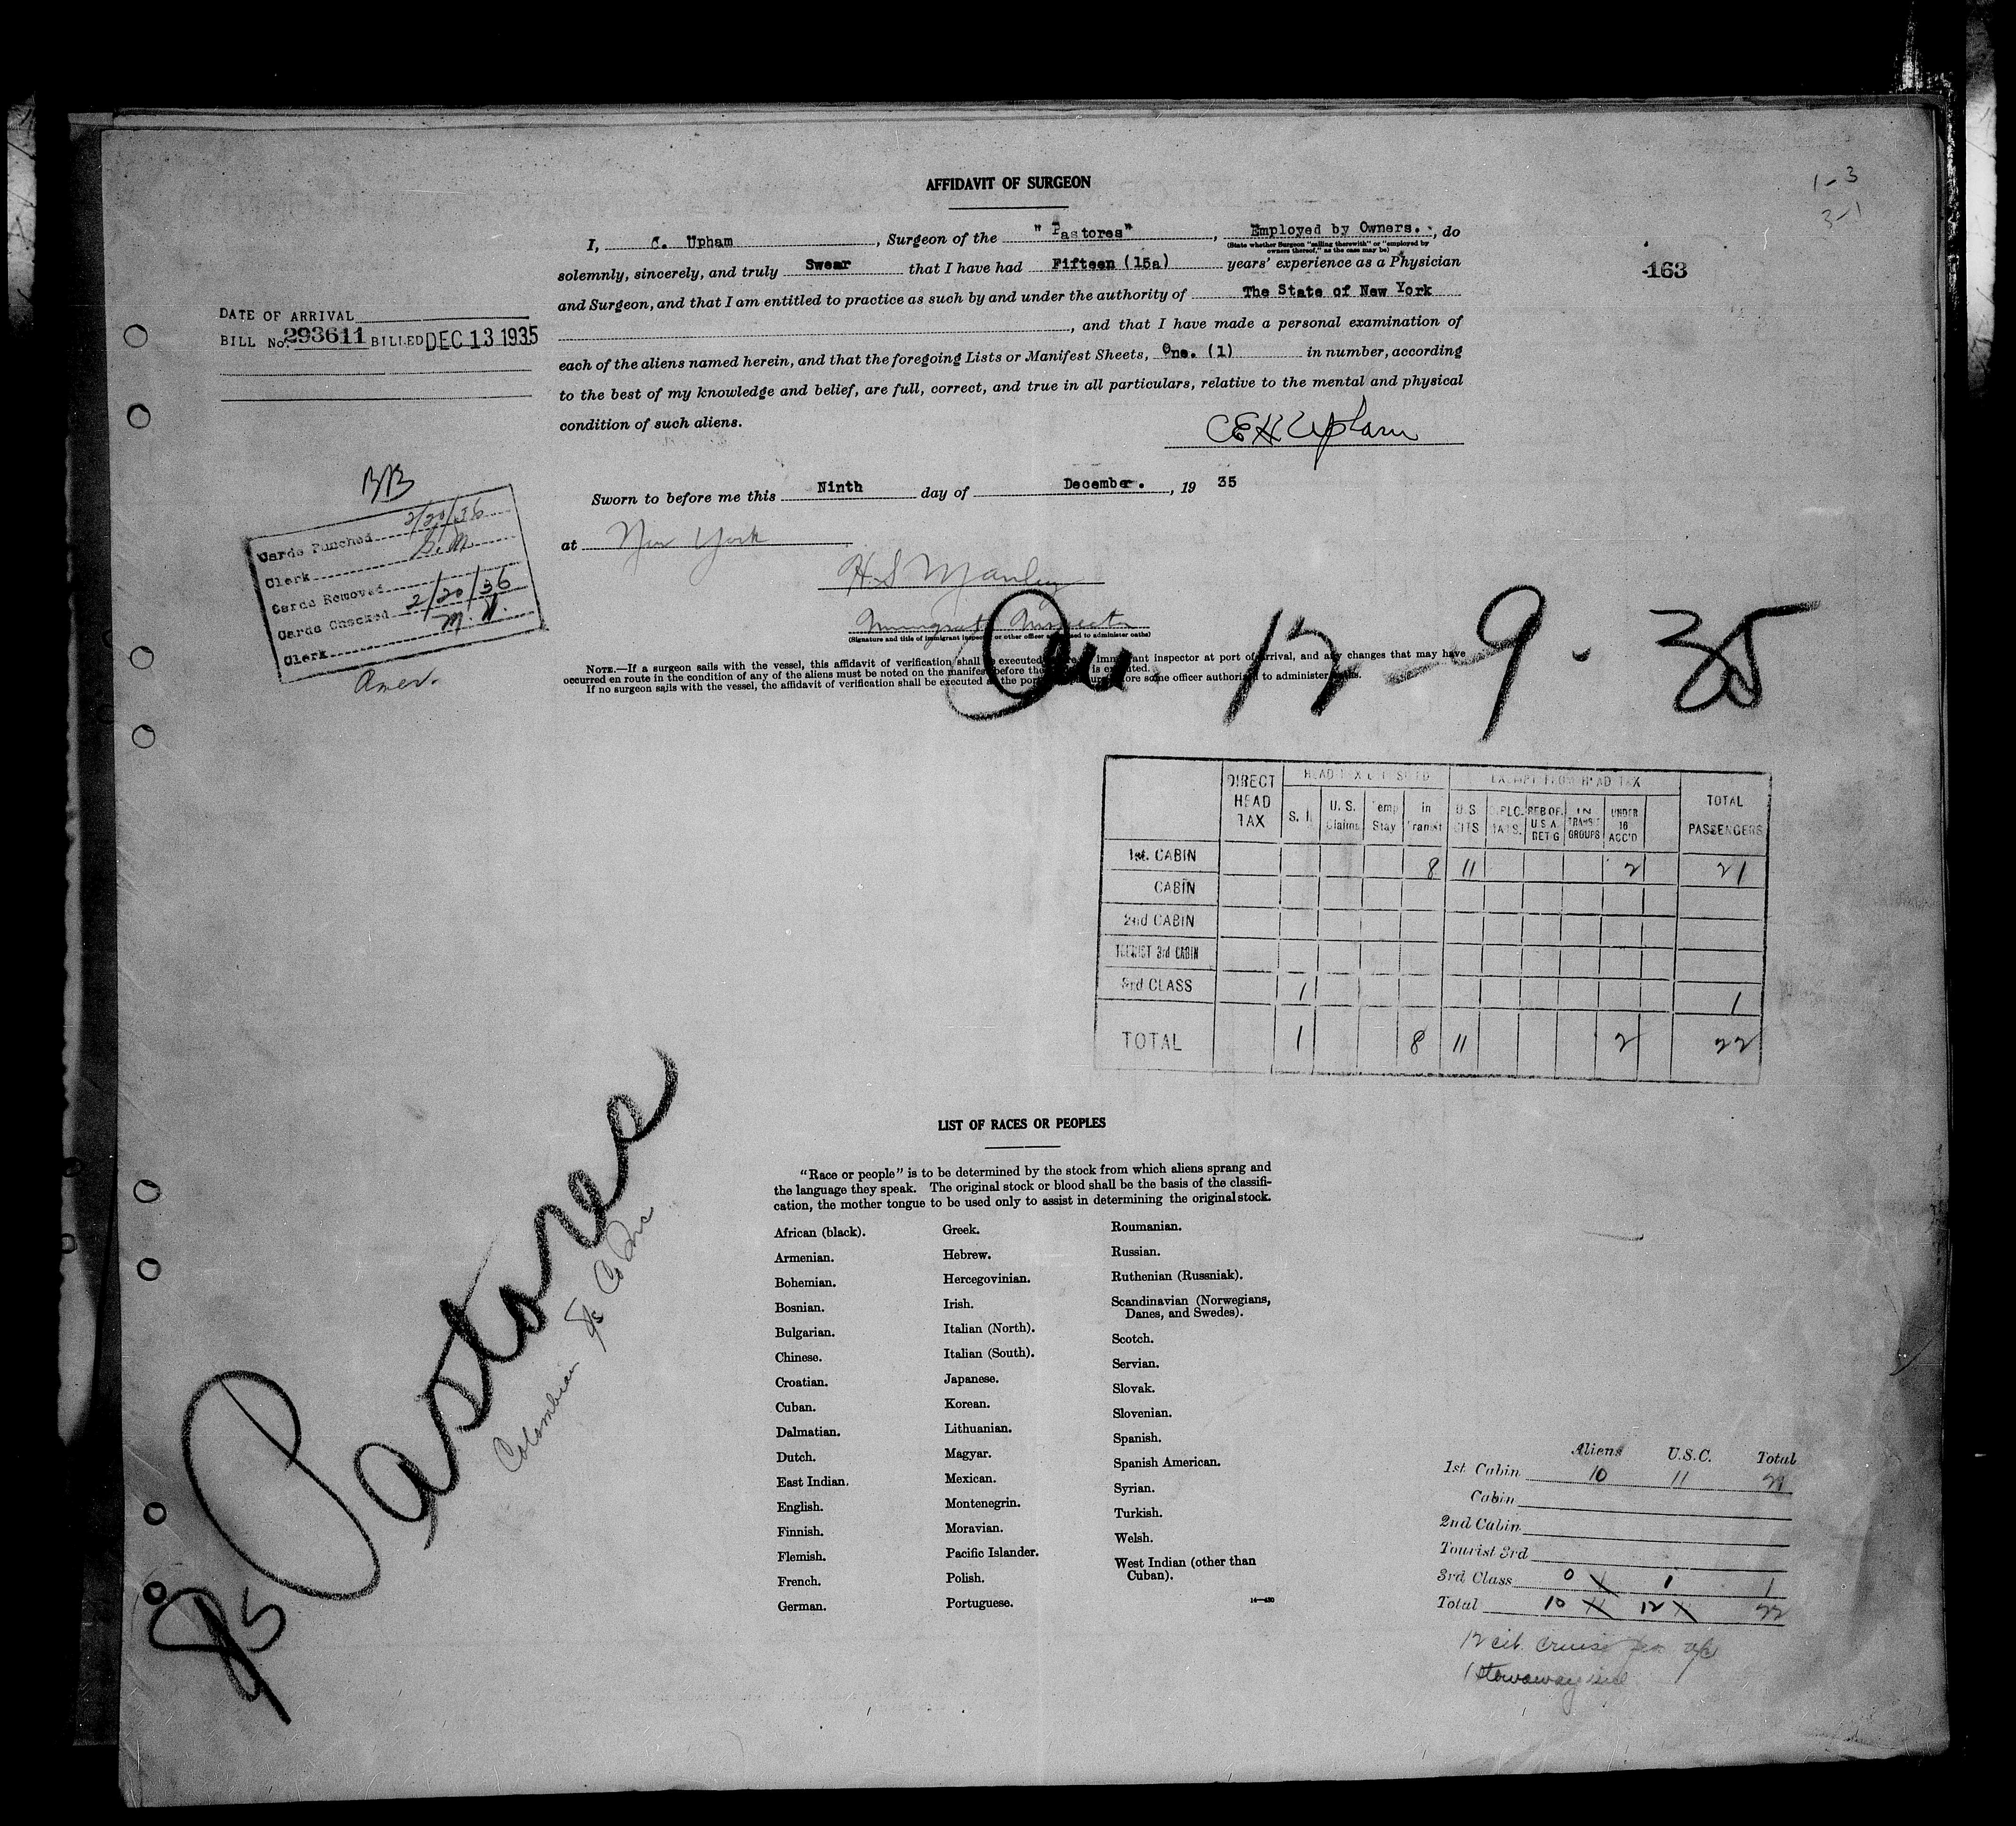 1-3
3-1
AFFIDAVIT OF SURGEON
I, C. Upham, Surgeon of the "Pastores", Employed by Owners., do
(State whether Surgeon "sailing therewith" or "employed by
owners thereof," as the case may be)
solemnly, sincerely, and truly Swear that I have had Fifteen (15a) years' experience as a Physician
and Surgeon, and that I am entitled to practice as such by and under the authority of The State of New York
, and that I have made a personal examination of
each of the aliens named herein, and that the foregoing Lists or Manifest Sheets, One. (1) in number, according
to the best of my knowledge and belief, are full, correct, and true in all particulars, relative to the mental and physical
condition of such aliens.
163
DATE OF ARRIVAL
BILL No. 293611 BILLED DEC 13 1935
CEH Upham
Sworn to before me this Ninth day of December., 19 35
at New York
H.S Manley
Immigrant Inspector
(Signature and title of immigrant inspector or other officer authorized to administer oaths)
BB
Cards Punched 2/20/36
Clerk
Cards Removed
Cards Checked 2/20/36
Clerk
Amer.
12-9-35
NOTE.—If a surgeon sails with the vessel, this affidavit of verification shall be executed before immigrant inspector at port of arrival, and any changes that may have
occurred en route in the condition of any of the aliens must be noted on the manifest before the is executed.
If no surgeon sails with the vessel, the affidavit of verification shall be executed at the port before some officer authorized to administer oaths.
DIRECT HEAD TAX
EXEMPT FROM HEAD TAX
TOTAL PASSENGERS
S. I. U. S. Claims Temp Stay in Transit U.S. CITS DIPLO- TATS. REB OF. U.S.A. RET'G IN TRANSIT GROUPS UNDER 16 ACC'D
1st. CABIN 8 11 2 21
CABIN
2nd CABIN
TOURIST 3rd CABIN
3rd CLASS 1 1
TOTAL 1 8 11 2 22
Pastores
Colombian SS Co Inc
85
LIST OF RACES OR PEOPLES
"Race or people" is to be determined by the stock from which aliens sprang and
the language they speak. The original stock or blood shall be the basis of the classifi-
cation, the mother tongue to be used only to assist in determining the original stock.
African (black).
Armenian.
Bohemian.
Bosnian.
Bulgarian.
Chinese.
Croatian.
Cuban.
Dalmatian.
Dutch.
East Indian.
English.
Finnish.
Flemish.
French.
German.
Greek.
Hebrew.
Hercegovinian.
Irish.
Italian (North).
Italian (South).
Japanese.
Korean.
Lithuanian.
Magyar.
Mexican.
Montenegrin.
Moravian.
Pacific Islander.
Polish.
Portuguese.
Roumanian.
Russian.
Ruthenian (Russniak).
Scandinavian (Norwegians,
Danes, and Swedes).
Scotch.
Servian.
Slovak.
Slovenian.
Spanish.
Spanish American.
Syrian.
Turkish.
Welsh.
West Indian (other than
Cuban).
14—430
Aliens U.S.C. Total
1st Cabin 10 11 21
Cabin
2nd Cabin
Tourist 3rd
3rd Class 0 1 1
Total 10 12 22
12 cit. cruise
1 stowaway incl